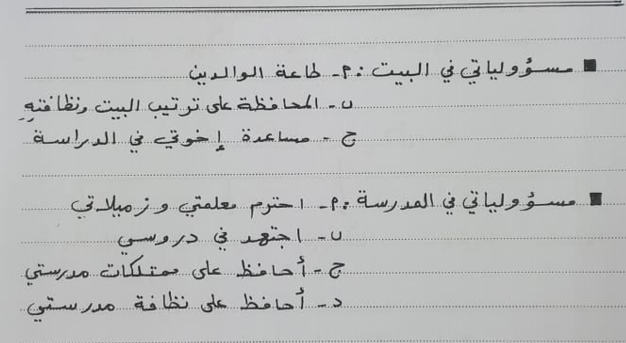 ■ مسؤولياتي في البيت : م- طاعة الوالدين
ب- المحافظة على ترتيب البيت ونظافتهِ
ج- مساعدة إخوتي في الدراسة
■ مسؤولياتي في المدرسة : م- احترم معلمتي وزميلاتي
ب- اجتهد في دروسي
ج- أحافظ على ممتلكات مدرستي
د- أحافظ على نظافة مدرستي